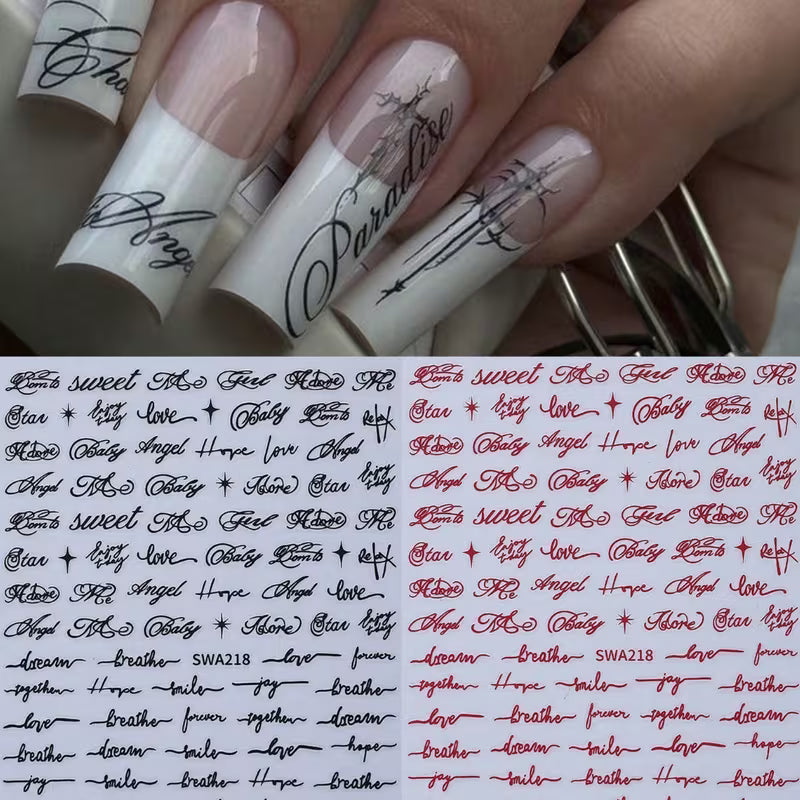 Paradise
sweet Girl Adore Me
Star Enjoy today love Baby Relax
Adore Baby Angel Hope love Angel
Angel Baby Adore Star Enjoy today
sweet Girl Adore Me
Star Enjoy today love Baby Relax
Adore Me Angel Hope Angel love
Angel Baby Adore Star Enjoy today
dream breathe SWA218 love forever
together Hope smile jay breathe
love breathe forever together dream
breathe dream smile love hope
jay smile breathe Hope breathe
sweet Girl Adore Me
Star Enjoy today love Baby Relax
Adore Baby Angel Hope love Angel
Angel Baby Adore Star Enjoy today
sweet Girl Adore Me
Star Enjoy today love Baby Relax
Adore Me Angel Hope Angel love
Angel Baby Adore Star Enjoy today
dream breathe SWA218 love forever
together Hope smile jay breathe
love breathe forever together dream
breathe dream smile love hope
jay smile breathe Hope breathe